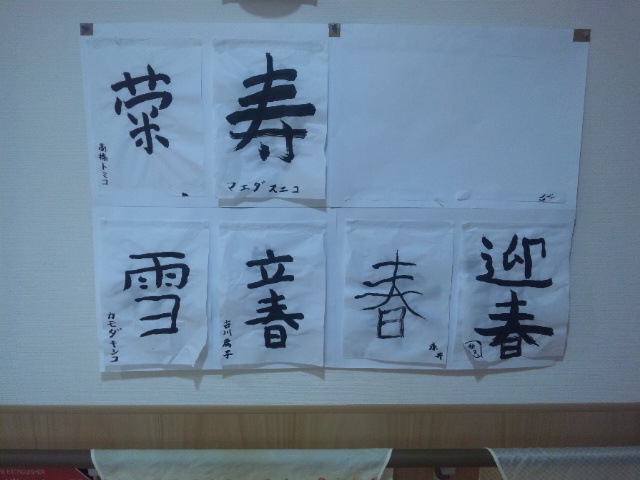 葉
高橋トミコ
寿
マエダスエコ
雪
カモダキシコ
立春
古川房子
春
永井
迎春